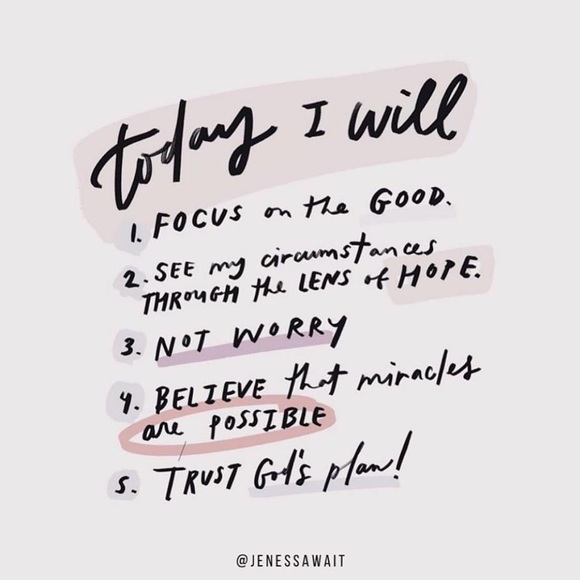 today I will
1. FOCUS on the GOOD.
2. SEE my circumstances
THROUGH the LENS of HOPE.
3. NOT WORRY
4. BELIEVE that miracles
are POSSIBLE
5. TRUST God's plan!
@JENESSAWAIT